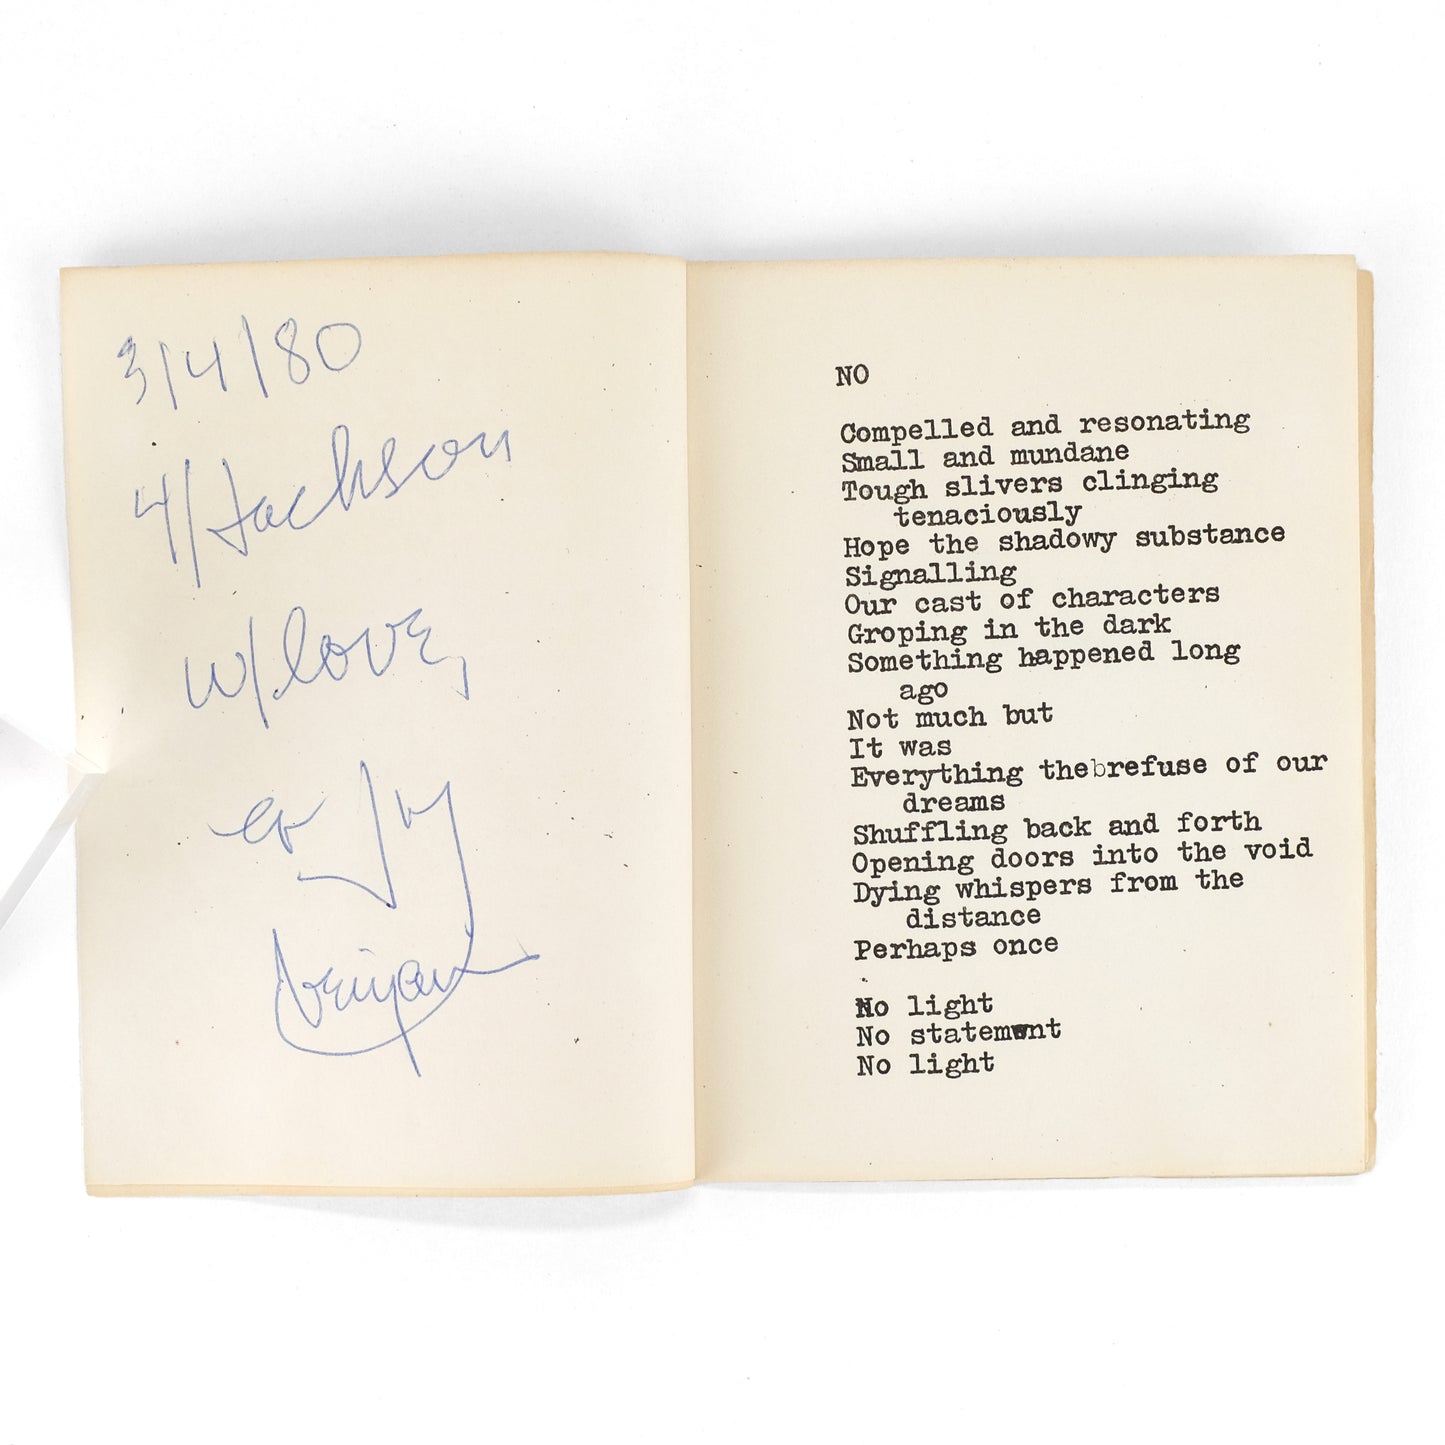 3/4/80
4/Jackson
w/love,
NO
Compelled and resonating
Small and mundane
Tough slivers clinging
tenaciously
Hope the shadowy substance
Signalling
Our cast of characters
Groping in the dark
Something happened long
ago
Not much but
It was
Everything thebrefuse of our
dreams
Shuffling back and forth
Opening doors into the void
Dying whispers from the
distance
Perhaps once
No light
No statement
No light